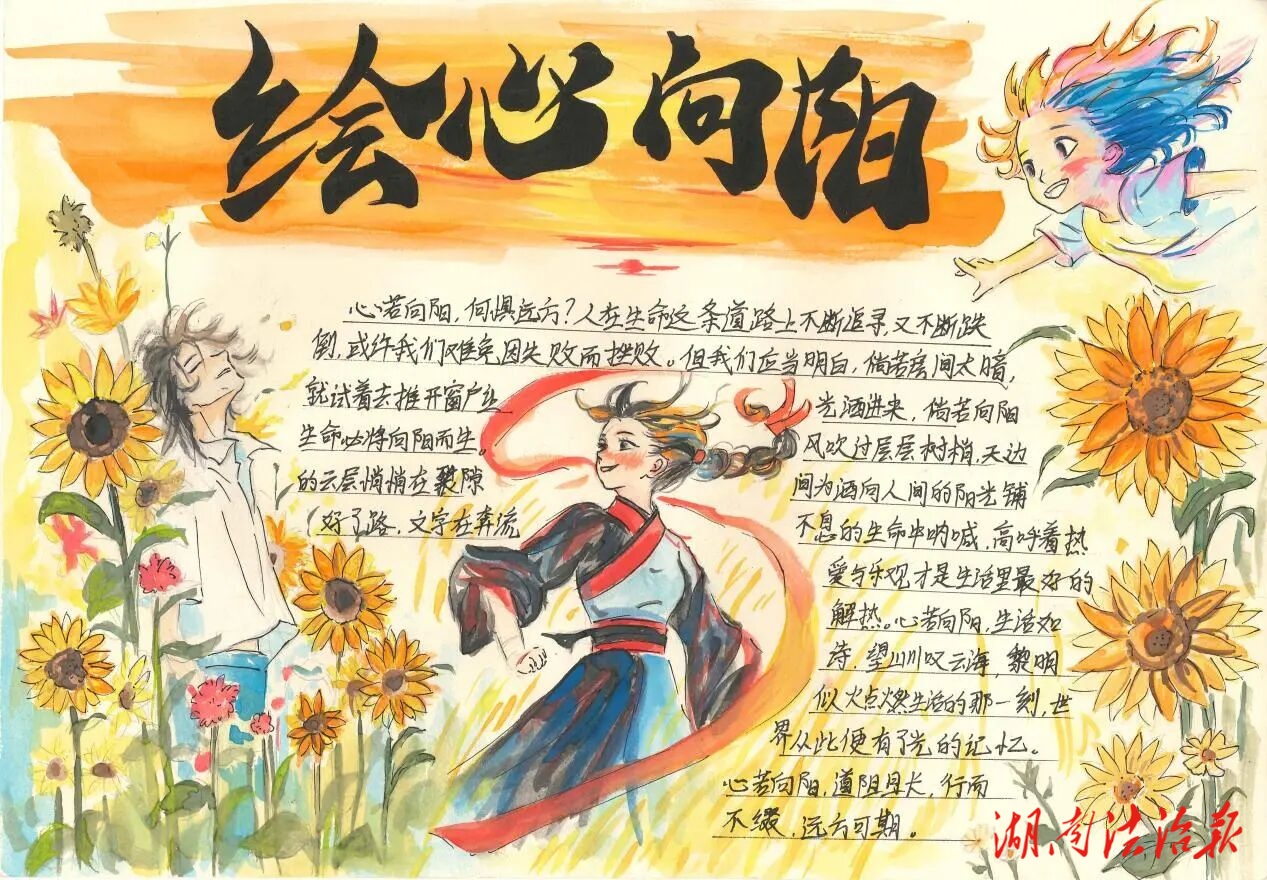 绘心向阳
心若向阳，何惧远方？人在生命这条道路上不断追寻，又不断跌
倒，或许我们难免因失败而挫败。但我们应当明白，倘若房间太暗，
就试着去推开窗户 光洒进来，倘若向阳
生命必将向阳而生。 风吹过层层树梢，天边
的云层悄悄在裂隙 间为洒向人间的阳光铺
好了路，文字在奔流 不息的生命中呐喊，高呼着热
爱与乐观才是生活里最好的
解热。心若向阳，生活如
诗，望山川叹云海，黎明
似火点燃生活的那一刻，世
界从此便有了光的记忆。
心若向阳，道阻且长，行而
不缀，远方可期。
湖南法治报